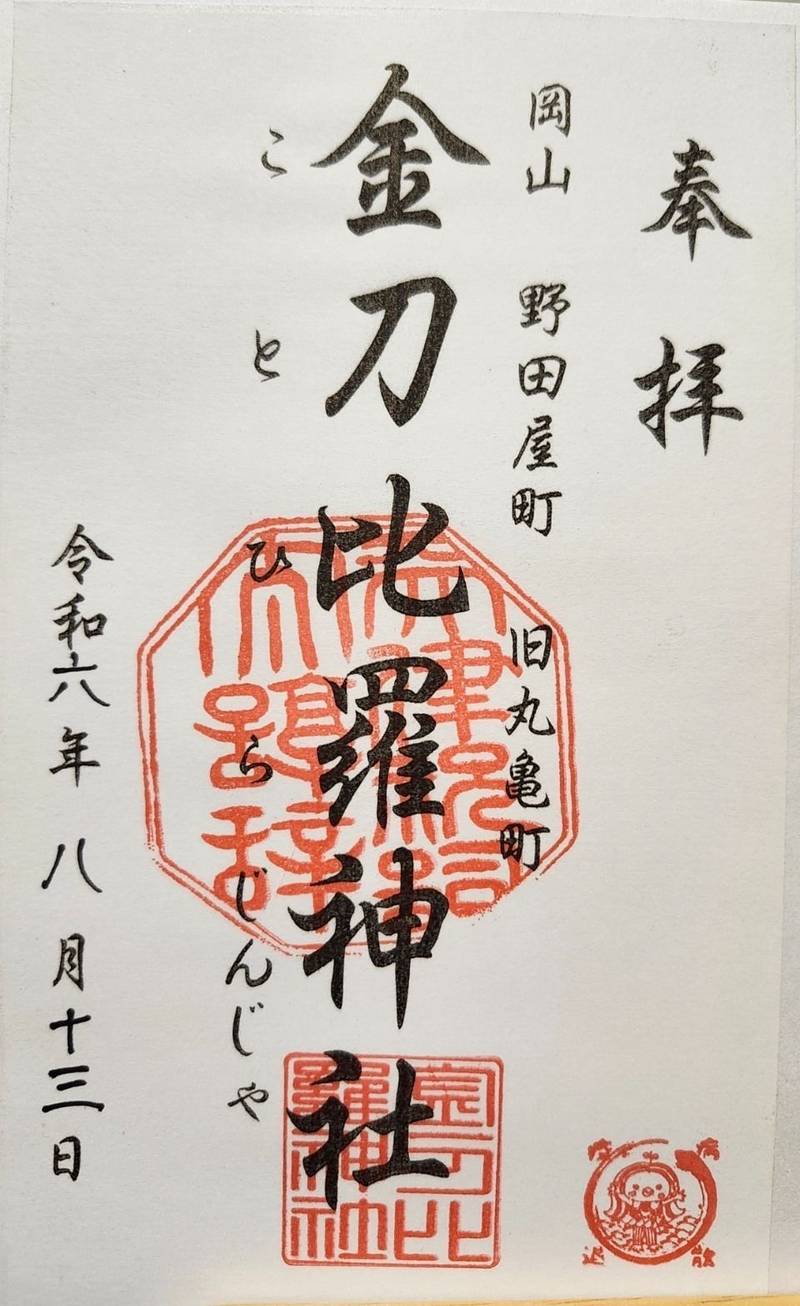 奉拝
岡山 野田屋町 旧丸亀町
金刀比羅神社
ことひらじんじゃ
令和六年 八月十三日